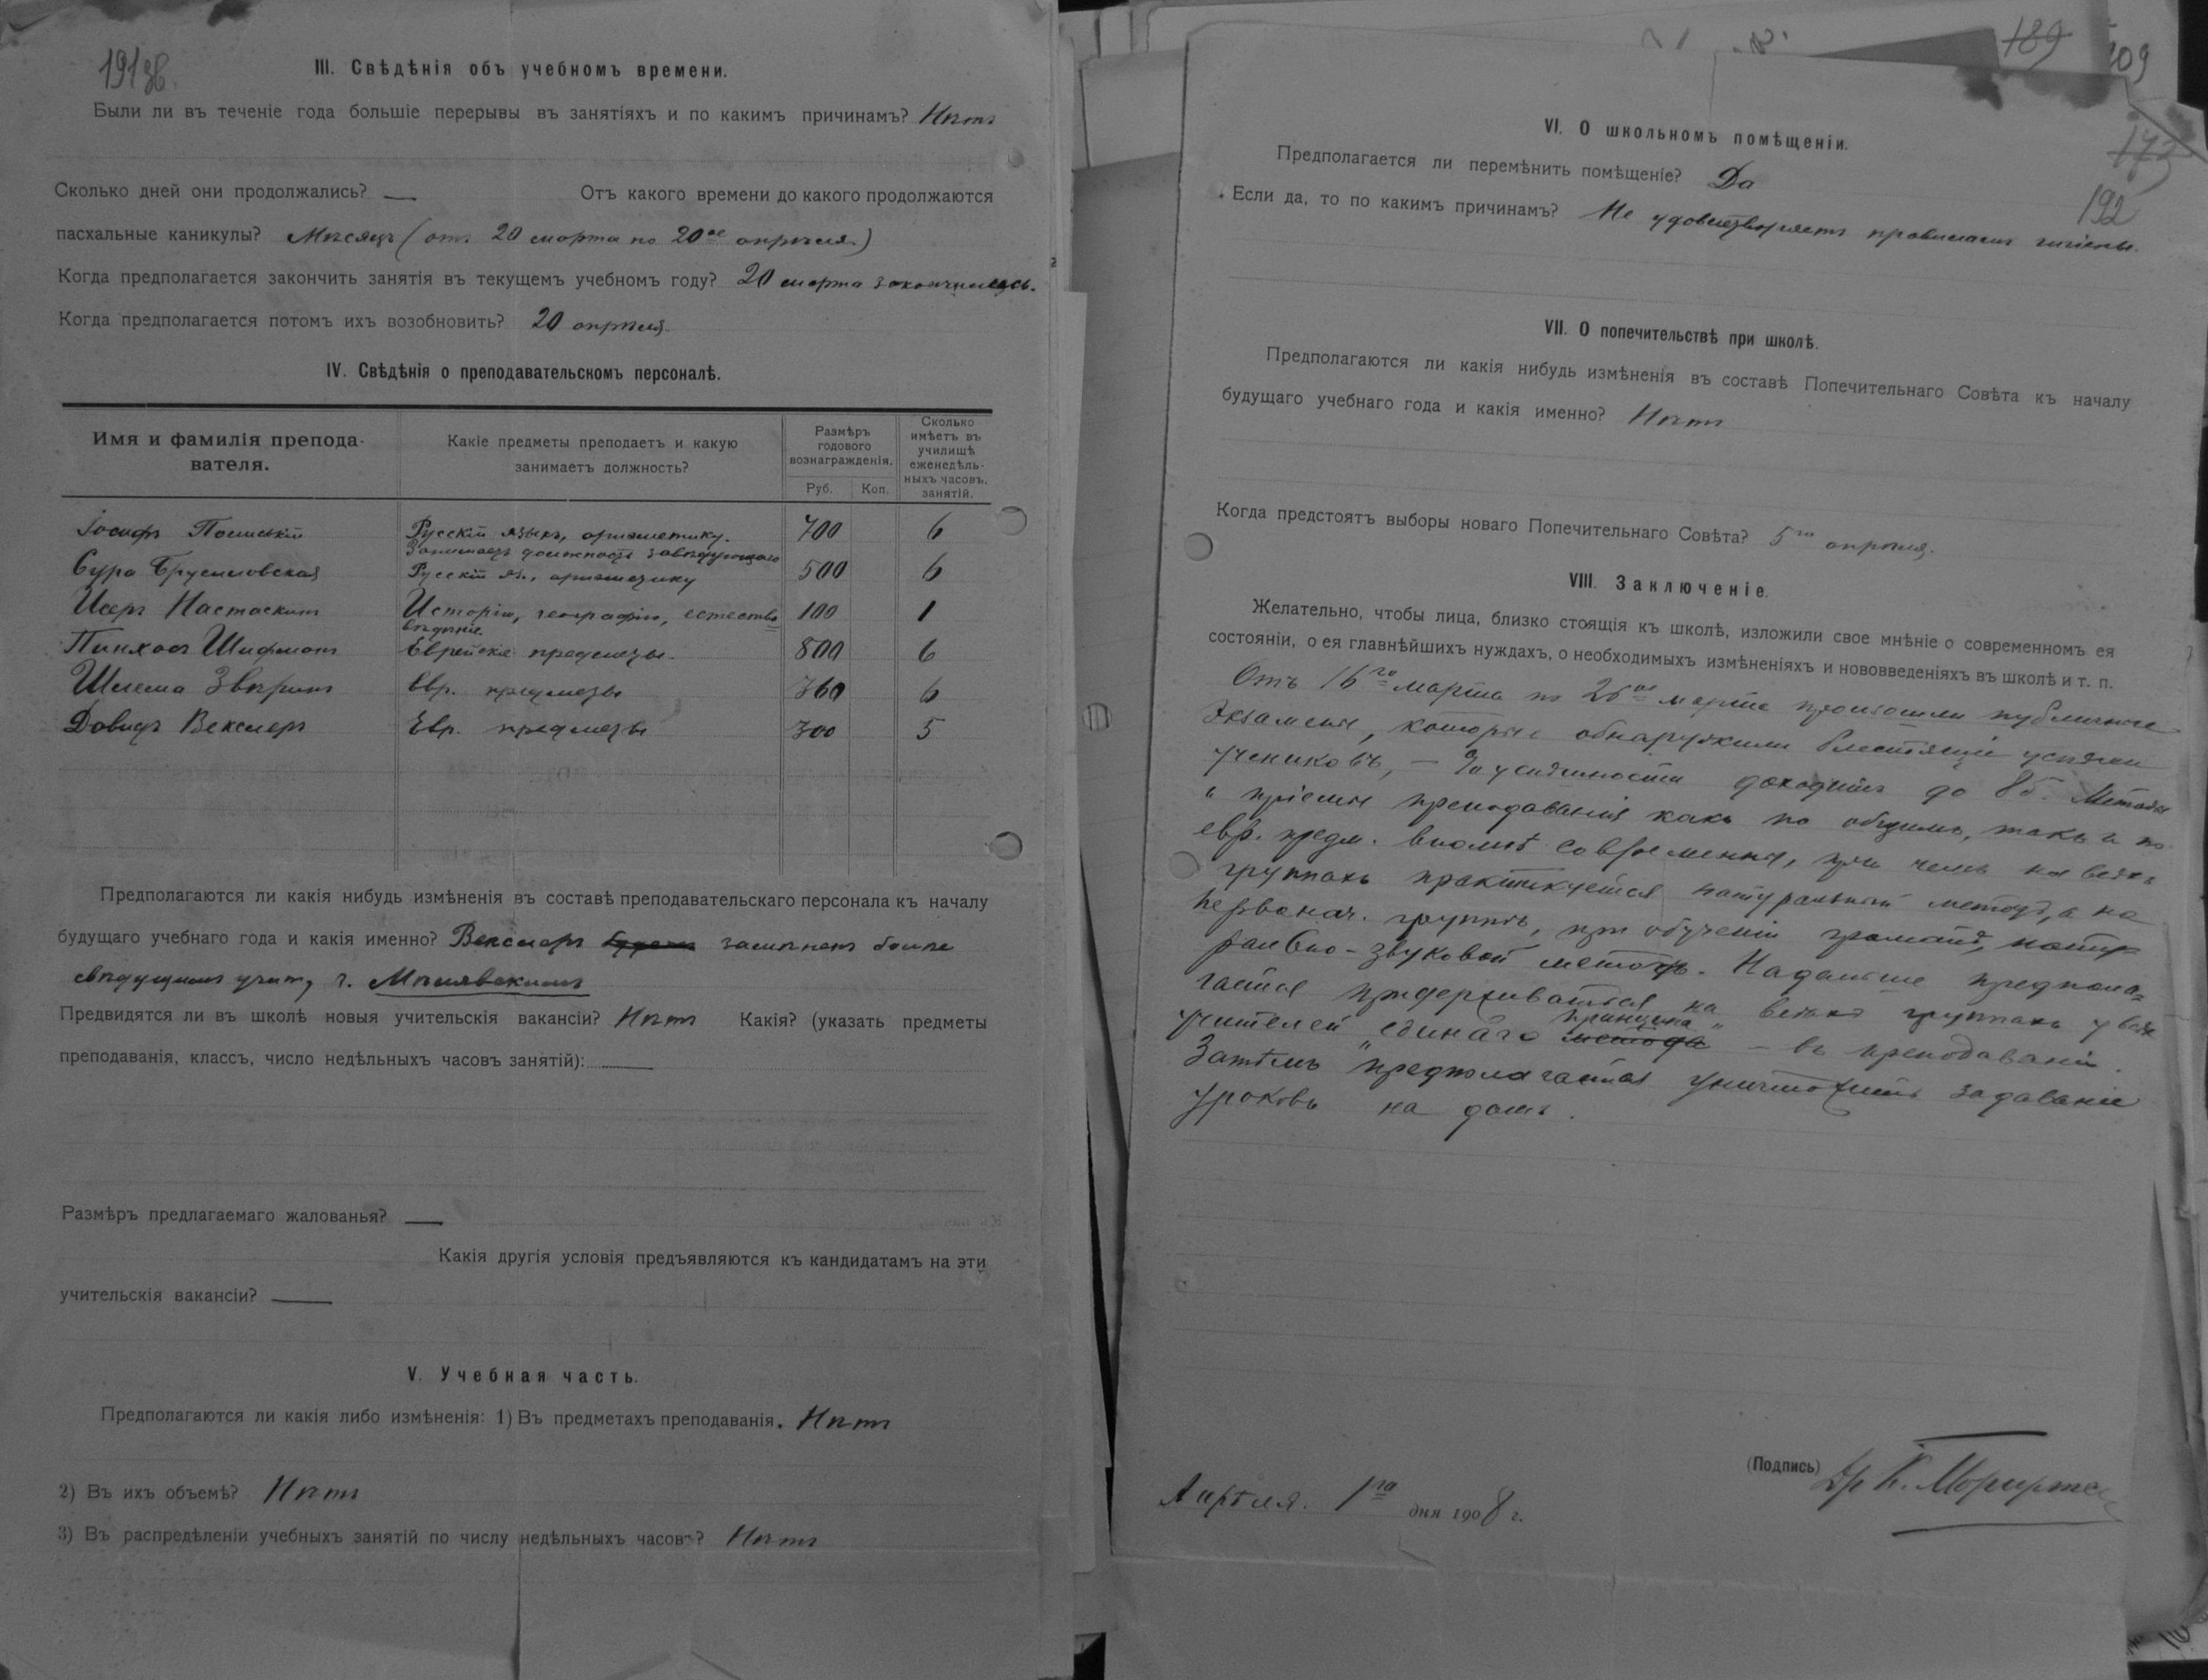 191об.
III. Свѣдѣнія объ учебномъ времени.
Были ли въ теченіе года большіе перерывы въ занятіяхъ и по какимъ причинамъ? Нѣтъ
Сколько дней они продолжались? — Отъ какого времени до какого продолжаются
пасхальные каникулы? Мѣсяцъ (отъ 20 марта по 20ое апрѣля)
Когда предполагается закончить занятія въ текущемъ учебномъ году? 20 марта закончились.
Когда предполагается потомъ ихъ возобновить? 20 апрѣля
IV. Свѣдѣнія о преподавательскомъ персоналѣ.
Имя и фамилія препода-
вателя.
Какіе предметы преподаетъ и какую
занимаетъ должность?
Размѣръ
годового
вознагражденія.
Руб. Коп.
Сколько
имѣетъ въ
училищѣ
еженедѣль-
ныхъ часовъ.
занятій.
Іосифъ Русскій языкъ, ариѳметику. 700 6
Занимаетъ должность завѣдующаго
Сура Брусиловская Русскій яз., ариѳметику 500 6
Исторію, географію, естество 100 1
вѣдѣніе.
Пинхосъ Шифманъ Еврейскіе предметы. 800 6
Шлема Звѣринъ Евр. предметы 360 6
Довидъ Векслеръ Евр. предметы 300 5
Предполагаются ли какія нибудь измѣненія въ составѣ преподавательскаго персонала къ началу
будущаго учебнаго года и какія именно? Векслеръ будетъ замѣненъ болѣе
свѣдущимъ учит., г.
Предвидятся ли въ школѣ новыя учительскія вакансіи? Нѣтъ Какія? (указать предметы
преподаванія, классъ, число недѣльныхъ часовъ занятій): —
Размѣръ предлагаемаго жалованья? —
Какія другія условія предъявляются къ кандидатамъ на эти
учительскія вакансіи? —
V. Учебная часть.
Предполагаются ли какія либо измѣненія: 1) Въ предметахъ преподаванія. Нѣтъ
2) Въ ихъ объемѣ? Нѣтъ
3) Въ распредѣленіи учебныхъ занятій по числу недѣльныхъ часовъ? Нѣтъ
189
109
173
192
VI. О школьномъ помѣщеніи.
Предполагается ли перемѣнить помѣщеніе? Да
Если да, то по какимъ причинамъ? Не удовлетворяетъ правиламъ гигіены.
VII. О попечительствѣ при школѣ.
Предполагаются ли какія нибудь измѣненія въ составѣ Попечительнаго Совѣта къ началу
будущаго учебнаго года и какія именно? Нѣтъ
Когда предстоятъ выборы новаго Попечительнаго Совѣта? 5го апрѣля.
VIII. Заключеніе.
Желательно, чтобы лица, близко стоящія къ школѣ, изложили свое мнѣніе о современномъ ея
состояніи, о ея главнѣйшихъ нуждахъ, о необходимыхъ измѣненіяхъ и нововведеніяхъ въ школѣ и т. п.
Отъ 16го марта по 26ое марта произошли публичные
экзамены, которые обнаружили блестящіе успѣхи
учениковъ, — % успѣшности доходитъ до 85. Методы
и пріемы преподаванія какъ по общимъ, такъ и по
евр. предм. вполнѣ современны, при чемъ на всѣхъ
группахъ практикуется натуральный методъ, а на
первонач. группѣ, при обученіи грамотѣ, нату-
рально-звуковой методъ. Надальше предпола-
гается придерживаться на всѣхъ группахъ у всѣхъ
учителей „единаго методъ принципа“ — въ преподаваніи.
Затѣмъ предполагается уничтожить задаваніе
уроковъ на домъ.
(Подпись) Др
Апрѣля. 1го дня 1908 г.